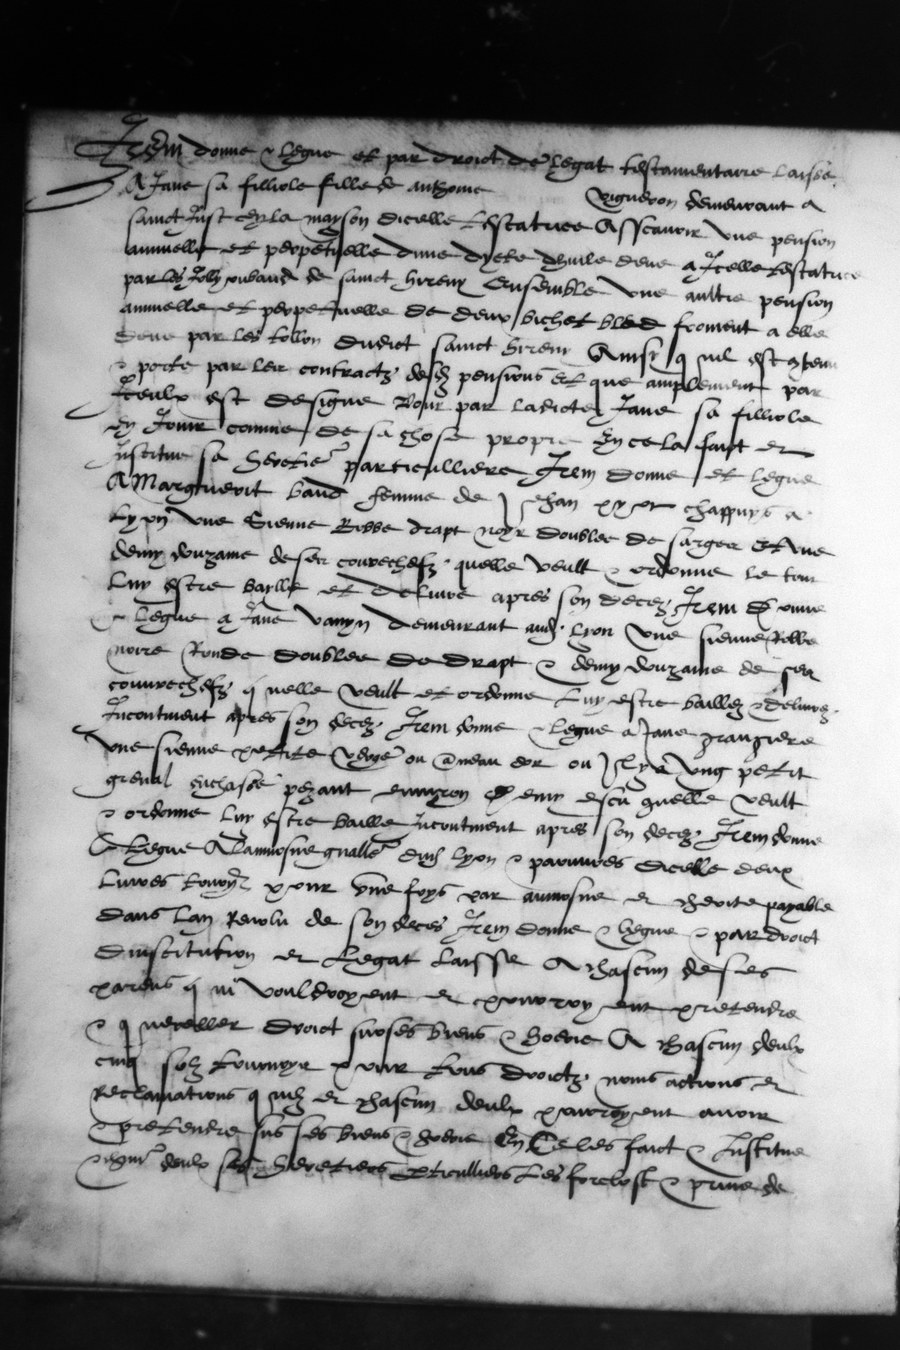 Item donne & legue et par droict de legat testamentaire laisse
A Jane sa filliole fille de anthoine vigneron demeurant a
sainct Just en la mayson dicelle testatrice Asscavoir une pension
annuelle et perpetuelle dune dhuile deue a Icelle testatrice
par les de sainct hireny Ensemble une aultre pension
annuelle et perpetuelle de deux bichet bled froment a elle
deue par les tollon dudict sainct hireny Ainsi quil est
& porte par les contractz desd pensions et que amplement par
Iceulx est designe Pour par ladicte Jane sa filliole
en Jouir comme de sa chose propre En ce la faict et
Institue sa heretiere particulliere Item donne et legue
A Marguerit baud femme de Jehan chappuys a
Lyon une sienne Robbe drapt noyr doublee de sarge et une
demy douzame de ses couvrechefz quelle veult & ordonne le tout
luy estre baylle et delivre apres son decez Item donne
& legue a Jane demeurant aud lyon une sienne Robbe
noire Ronde doublee de drapt & demy douzaine de ses
couvrechefz quelle veult et ordonne luy estre baillez & delivrez
Incontinent apres son decez Item donne & legue a Jane
une sienne petite verge ou aneau dor ou Il y a ung petit
grenal enchasse pezant environ demy escu quelle veult
& ordonne luy estre baille Incontinent apres son decez Item donne
& legue A laumosne dud lyon & pauvres dicelle deux
livres pour une foys par aumosne et payable
dans lan revolu de son deces Item donne & legue & par droict
dinstitution et legat laisse A chascun de ses
parens qui vouldroyent et pourroyent pretendre
& droict sus ses biens & hoerie A chascun deulx
cinq solz tournoys pour tous droictz noms actions et
reclamations quilz et chascun deulx pourroyent avoir
& pretendre sus ses biens & hoerie En ce les faict & Institue
deulx ses heretiers particulliers les forclost & prive de